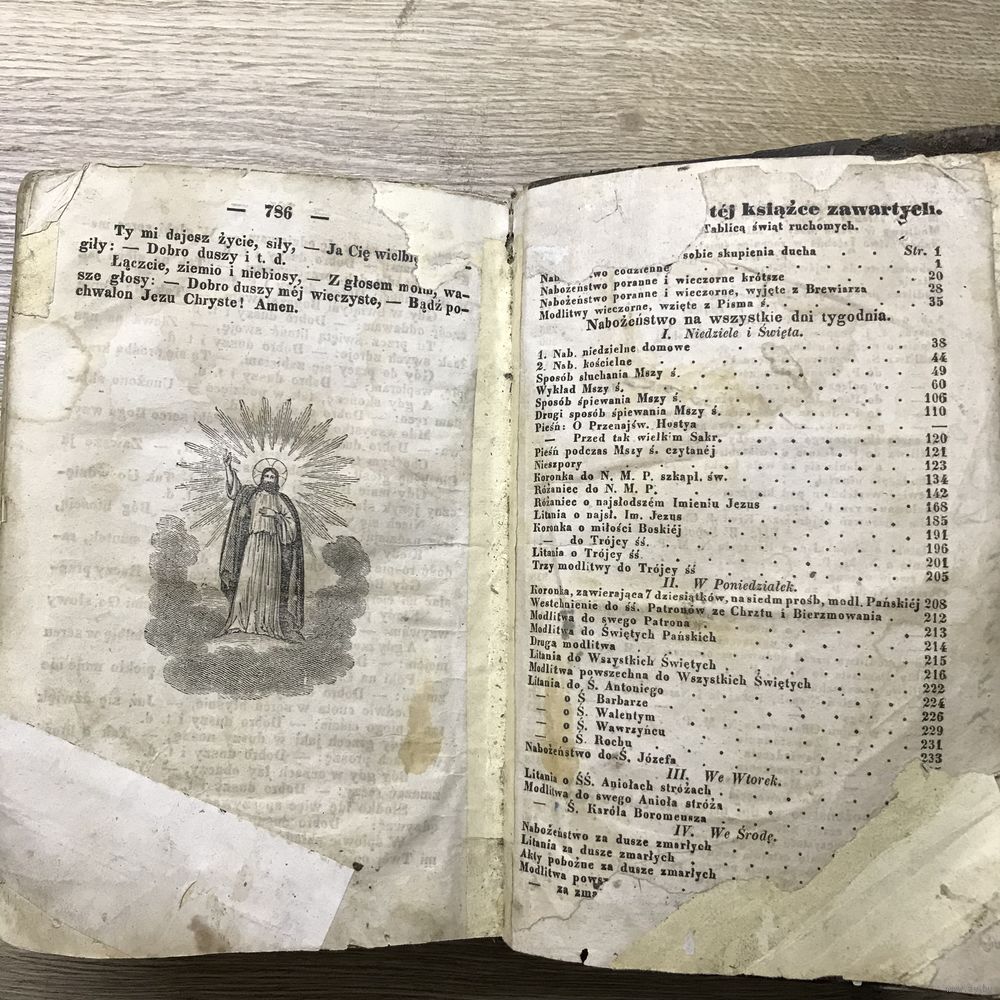 — 786 —
Ty mi dajesz życie, siły, — Ja Cię
giły: — Dobro duszy i t. d.
Łączcie, ziemio i niebiosy, — Z głosem moim, wa-
sze głosy: — Dobro duszy méj wieczyste, — Bądź po-
chwalon Jezu Chryste! Amen.
téj książce zawartych.
Tablicą świąt ruchomych.
sobie skupienia ducha Str. 1
codzienne 1
Nabożeństwo poranne i wieczorne krótsze 20
Nabożeństwo poranne i wieczorne, wyjęte z Brewiarza 28
Modlitwy wieczorne, wzięte z Pisma ś. 35
Nabożeństwo na wszystkie dni tygodnia.
I. Niedziele i Święta.
1. Nab. niedzielne domowe 38
2. Nab. kościelne 44
Sposób słuchania Mszy ś. 49
Wykład Mszy ś. 60
Sposób śpiewania Mszy ś. 106
Drugi sposób śpiewania Mszy ś. 110
Pieśń: O Przenajśw. Hostya —
— Przed tak wielkim Sakr. 120
Pieśń podczas Mszy ś. czytanéj 121
Nieszpory 123
Koronka do N. M. P. szkapl. św. 134
Różaniec do N. M. P. 142
Różaniec o najsłodszém Imieniu Jezus 168
Litania o najsł. Im. Jezus 185
Koronka o miłości Boskiéj 191
— do Trójcy śś. 196
Litania o Trójcy śś. 201
Trzy modlitwy do Trójcy śś 205
II. W Poniedziałek.
Koronka, zawierająca 7 dziesiątków, na siedm prośb, modl. Pańskiéj 208
Westchnienie do śś. Patronów ze Chrztu i Bierzmowania 212
Modlitwa do swego Patrona 213
Modlitwa do Świętych Pańskich 214
Druga modlitwa 215
Litania do Wszystkich Świętych 216
Modlitwa powszechna do Wszystkich Świętych 222
Litania do Ś. Antoniego 224
— o Ś Barbarze 226
— o Ś. Walentym 229
— o Ś. Wawrzyńcu 231
— o Ś. Rochu 233
Nabożeństwo do Ś. Józefa
III. We Wtorek.
Litania o ŚŚ. Aniołach stróżach
Modlitwa do swego Anioła stróża
— Ś. Karóla Boromeusza
IV. We Środę.
Nabożeństwo za dusze zmarłych
Litania za dusze zmarłych
Akty pobożne za dusze zmarłych
Modlitwa
— za